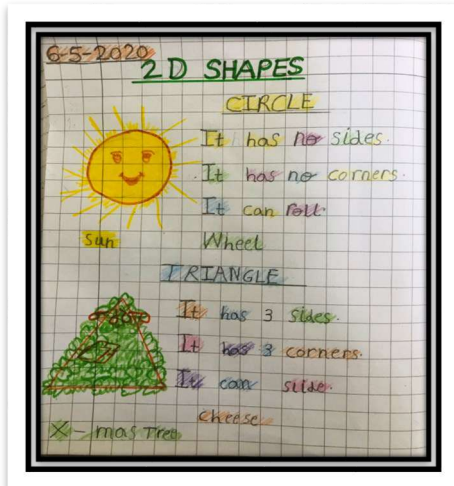 6-5-2020
2D SHAPES
CIRCLE
It has no sides.
It has no corners.
It can roll.
sun
Wheel
TRIANGLE
It has 3 sides.
It has 3 corners.
It can slide.
cheese
X-mas Tree